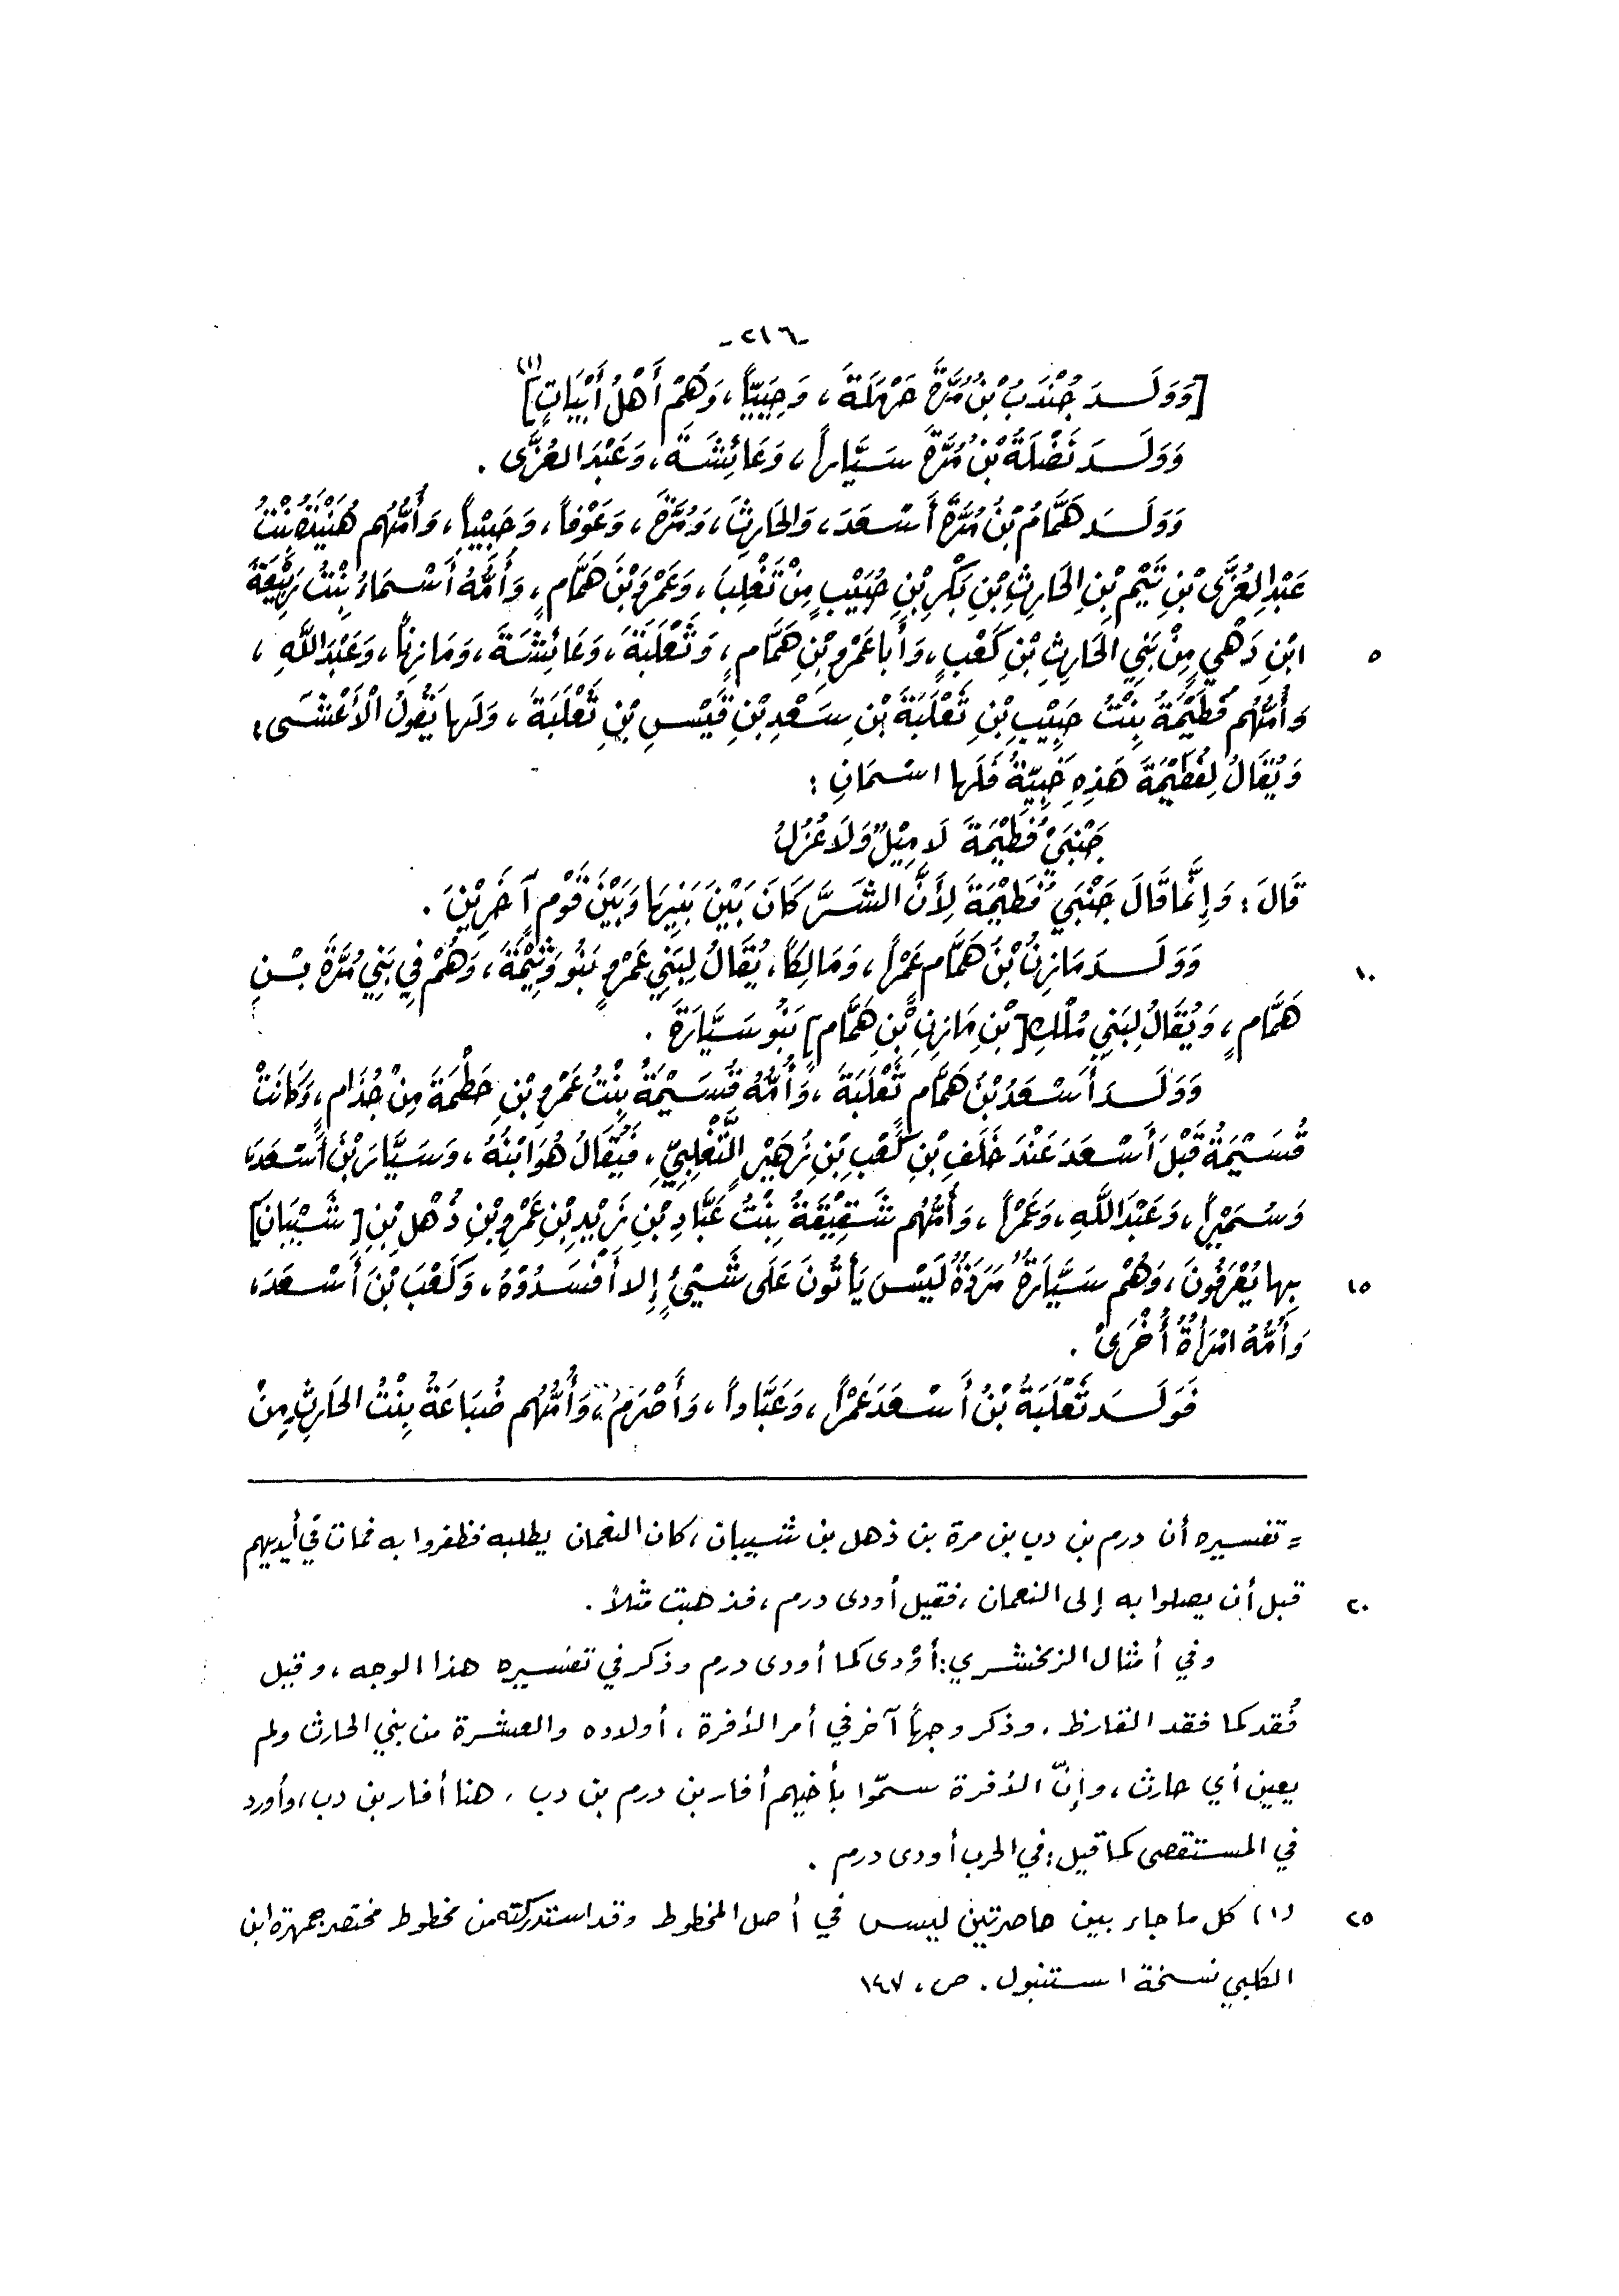 -٢١٦-
[وَوَلَــدَ جُنْدَبُ بْنُ مُرَّةَ جَهْلَةَ، وَحَبِيْباً، وَهُمْ أَهْلُ أَبْيَاتٍ](١)
وَوَلَــدَ نَضْلَةُ بْنُ مُرَّةَ سَيَّاراً، وَعَائِشَةَ، وَعَبْدَ العُزَّى .
وَوَلَــدَ هَمَّامُ بْنُ مُرَّةَ أَسْعَدَ، وَالحَارِثَ، وَمُرَّةَ، وَعَوْفاً، وَحَبِيْباً، وَأُمُّهُم هُنَيْدَةُ بِنْتُ
عَبْدِ العُزَّى بْنِ تَيْمِ بْنِ الحَارِثِ بْنِ بَكْرِ بْنِ حُبَيْبٍ مِنْ تَغْلِبَ، وَعَمْرَو بْنَ هَمَّامٍ، وَأُمُّهُ أَسْمَاءُ بِنْتُ رَبِيْعَةَ
٥ ابْنِ دَهْيٍ مِنْ بَنِي الحَارِثِ بْنِ كَعْبٍ، وَأَبا عَمْرِو بْنِ هَمَّامٍ، وَثَعْلَبَةَ، وَعَائِشَةَ، وَمَازِناً، وَعَبْدَ اللَّهِ،
وَأُمُّهُم فُطَيْمَةُ بِنْتُ حَبِيْبِ بْنِ ثَعْلَبَةَ بْنِ سَعْدِ بْنِ قَيْسِ بْنِ ثَعْلَبَةَ، وَلَها يَقُولُ الأَعْشَى،
وَيُقَالُ لِفُطَيْمَةَ هَذِهِ فَلَها اسْمَانِ :
جَنْبَيْ فُطَيْمَةَ لَا مِيْلٌ وَلَا عُزُلُ
قَالَ : وَإِنَّمَا قَالَ جَنْبَيْ فُطَيْمَةَ لِأَنَّ الشَّرَّ كَانَ بَيْنَ بَنِيهَا وَبَيْنَ قَوْمٍ آخَرِيْنَ .
١٠ وَوَلَــدَ مَازِنُ بْنُ هَمَّامٍ عَمْراً، وَمَالِكاً، يُقَالُ لِبَنِي عَمْرٍو بَنُو وَثِيْمَةَ، وَهُمْ فِي بَنِي مُرَّةَ بْــنِ
هَمَّامٍ، وَيُقَالُ لِبَنِي مُلْكِ [بْنِ مَازِنِ بْنِ هَمَّامٍ] بَنُو سَيَّارَةَ .
وَوَلَــدَ أَسْعَدُ بْنُ هَمَّامٍ ثَعْلَبَةَ، وَأُمُّهُ قُسَيْمَةُ بِنْتُ عَمْرِو بْنِ حَطْمَةَ مِنْ جُذَامٍ، وَكَانَتْ
قُسَيْمَةُ قَبْلَ أَسْعَدَ عَنْدَ خَلَفِ بْنِ كَعْبِ بْنِ زُهَيْرٍ التَّغْلِبِيِّ، فَيُقَالُ هُوَ ابْنُهُ، وَسَيَّارَ بْنَ أَسْعَدَ،
وَسُمَيْراً، وَعَبْدَ اللَّهِ، وَعَمْراً، وَأُمُّهُم شَقِيْقَةُ بِنْتُ عَبَّادِ بْنِ زَيْدِ بْنِ عَمْرِو بْنِ ذُهْلِ بْنِ [شَيْبَانَ]
١٥ بِها يُعْرَفُونَ، وَهُمْ سَيَّارَةٌ مَرَدَةٌ لَيْسَ يَأْتُونَ عَلَى شَيْئٍ إِلا أَفْسَدُوْهُ، وَكَعْبَ بْنَ أَسْعَدَ،
وَأُمُّهُ امْرَأَةٌ أُخْرَى .
فَوَلَــدَ ثَعْلَبَةُ بْنُ أَسْعَدَ عَمْراً، وَعَبَّاداً، وَأَصْرَمَ، وَأُمُّهُم ضُبَاعَةُ بِنْتُ الحَارِثِ مِنْ
= تفسيره أن درم بن دب بن مرة بن ذهل بن شيبان، كان النعمان يطلبه فظفروا به فمات في أيديهم
٢٠ قبل أن يصلوا به إلى النعمان، فقيل أودى درم، فذهبت مثلاً .
وفي أمثال الزمخشري: أوْدى كما أودى درم وذكر في تفسيره هذا الوجه، وقيل
فُقد كما فقد القارظ، وذكر وجهاً آخر في أمر الأفرة، أولاده والعشرة من بني الحارث ولم
يعين أي حارث، وإنّ الأفرة سمّوا بأخيهم أفار بن درم بن دب، هنا أفار بن دب، وأورد
في المستقصى كما قيل: في الحرب أودى درم .
٢٥ (١) كل ما جاء بين حاصرتين ليس في أصل المخطوط وقد استدركته من مخطوط مختصر جمهرة ابن
الكلبي نسخة استنبول . ص، ١٤٧